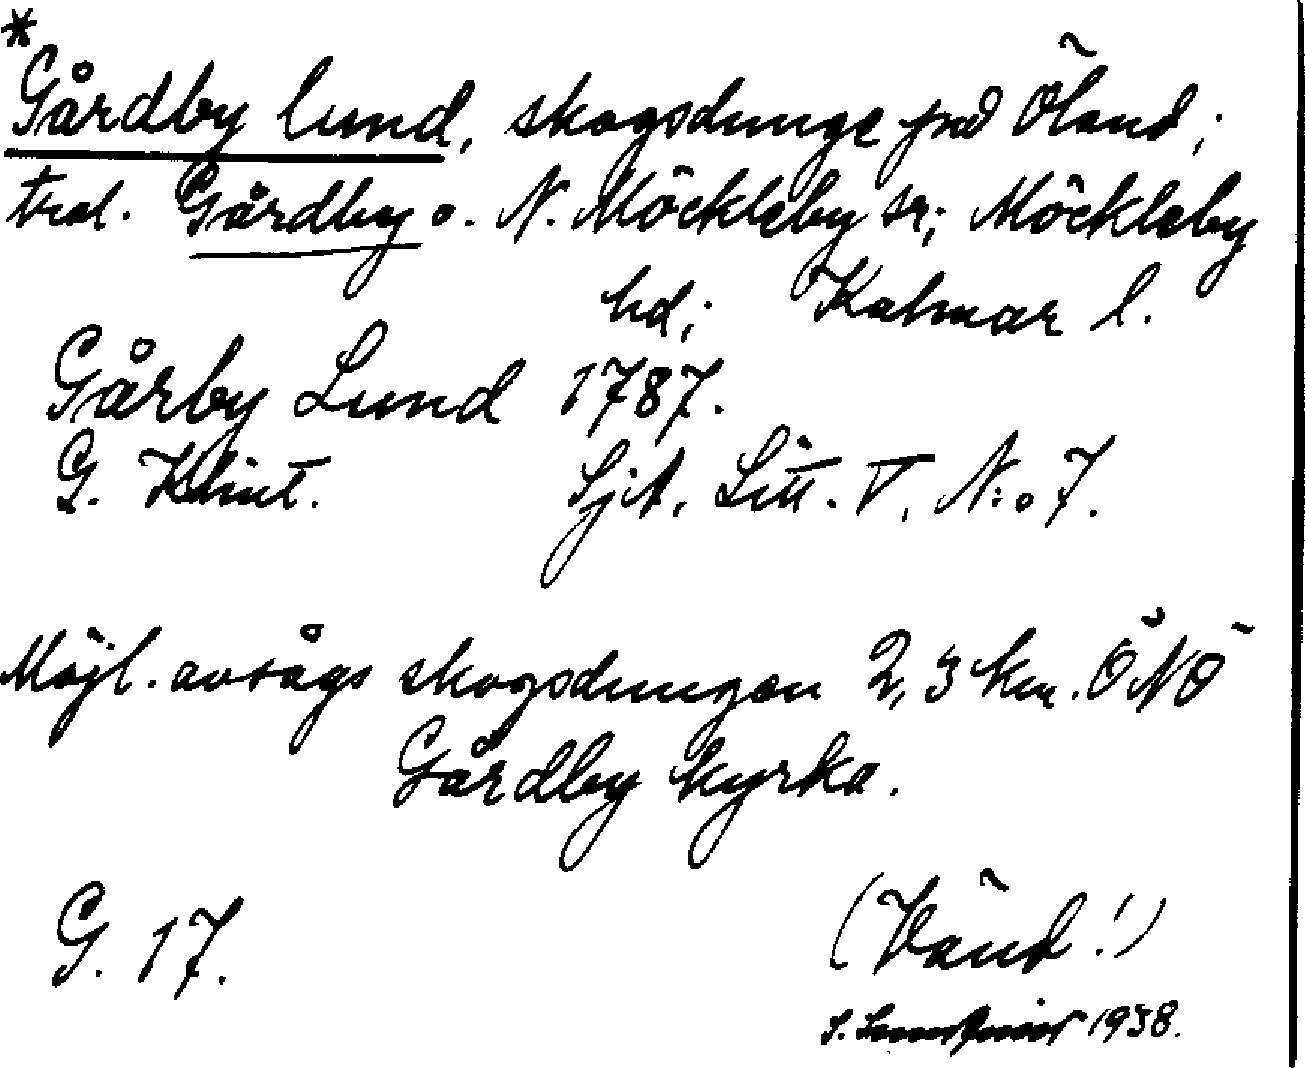 *
Gårdby lund, skogsdunge på Öland;
trol. Gårdby o. N. Möckleby sr; Möckleby
hd; Kalmar l.
Gårby Lund 1787.
G. Klint. Sjk. Litt. V, N:o 7.
Möjl. avsågs skogsdungen 2,3 km. ÖNÖ
Gårdby kyrka.
G. 17. (Vänd!)
S. 1938.